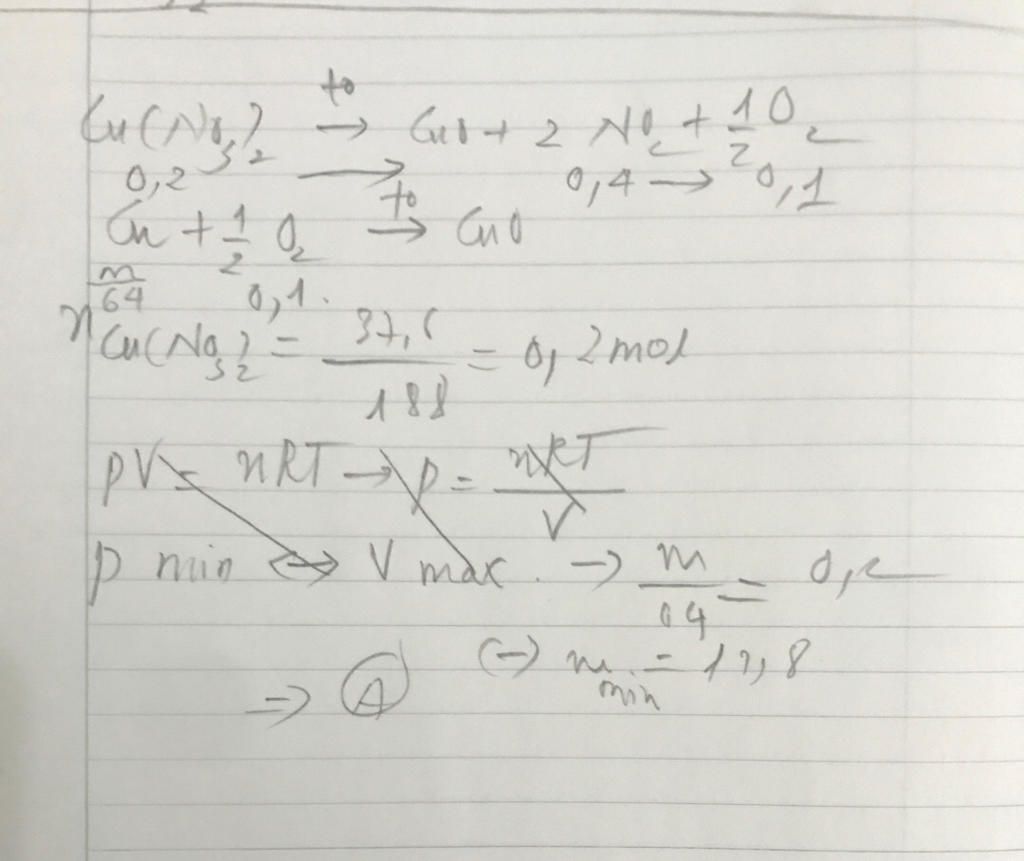 Cu(NO3)2 t° → CuO + 2 NO2 + 1/2 O2
0,2 → 0,4 → 0,1
Cu + 1/2 O2 t° → CuO
m/64 0,1.
nCu(NO3)2 = 37,6/188 = 0,2 mol
pV = nRT → p = nRT/V
p min ⇔ V max. → m/64 = 0,2
(→) m min = 12,8
⇒ A